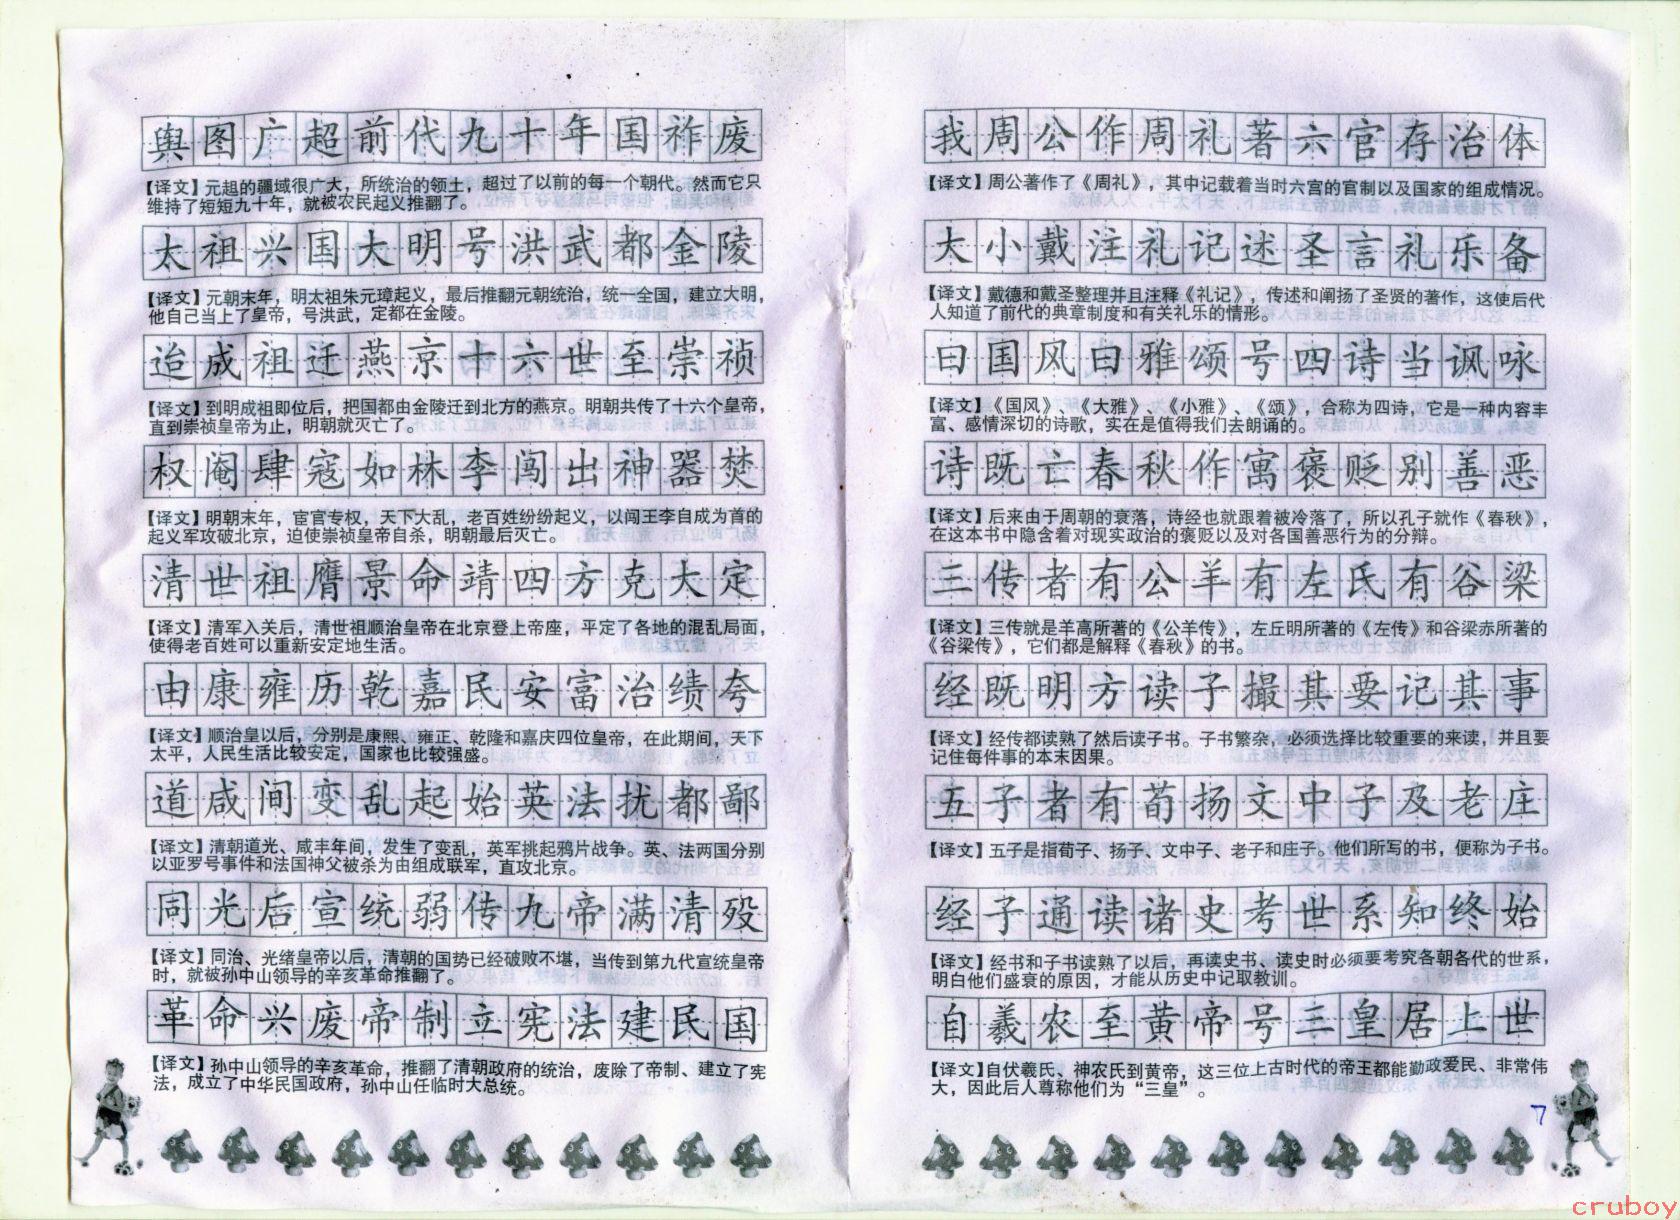 舆图广超前代九十年国祚废
【译文】元趄的疆域很广大，所统治的领土，超过了以前的每一个朝代。然而它只
维持了短短九十年，就被农民起义推翻了。
太祖兴国大明号洪武都金陵
【译文】元朝末年，明太祖朱元璋起义，最后推翻元朝统治，统一全国，建立大明，
他自己当上了皇帝，号洪武，定都在金陵。
迨成祖迁燕京十六世至崇祯
【译文】到明成祖即位后，把国都由金陵迁到北方的燕京。明朝共传了十六个皇帝，
直到崇祯皇帝为止，明朝就灭亡了。
权阉肆寇如林李闯出神器焚
【译文】明朝末年，宦官专权，天下大乱，老百姓纷纷起义，以闯王李自成为首的
起义军攻破北京，迫使崇祯皇帝自杀，明朝最后灭亡。
清世祖膺景命靖四方克大定
【译文】清军入关后，清世祖顺治皇帝在北京登上帝座，平定了各地的混乱局面，
使得老百姓可以重新安定地生活。
由康雍历乾嘉民安富治绩夸
【译文】顺治皇以后，分别是康熙、雍正、乾隆和嘉庆四位皇帝，在此期间，天下
太平，人民生活比较安定，国家也比较强盛。
道咸间变乱起始英法扰都鄙
【译文】清朝道光、咸丰年间，发生了变乱，英军挑起鸦片战争。英、法两国分别
以亚罗号事件和法国神父被杀为由组成联军，直攻北京。
同光后宣统弱传九帝满清殁
【译文】同治、光绪皇帝以后，清朝的国势已经破败不堪，当传到第九代宣统皇帝
时，就被孙中山领导的辛亥革命推翻了。
革命兴废帝制立宪法建民国
【译文】孙中山领导的辛亥革命，推翻了清朝政府的统治，废除了帝制、建立了宪
法，成立了中华民国政府，孙中山任临时大总统。
我周公作周礼著六官存治体
【译文】周公著作了《周礼》，其中记载着当时六宫的官制以及国家的组成情况。
大小戴注礼记述圣言礼乐备
【译文】戴德和戴圣整理并且注释《礼记》，传述和阐扬了圣贤的著作，这使后代
人知道了前代的典章制度和有关礼乐的情形。
曰国风曰雅颂号四诗当讽咏
【译文】《国风》、《大雅》、《小雅》、《颂》，合称为四诗，它是一种内容丰
富、感情深切的诗歌，实在是值得我们去朗诵的。
诗既亡春秋作寓褒贬别善恶
【译文】后来由于周朝的衰落，诗经也就跟着被冷落了，所以孔子就作《春秋》，
在这本书中隐含着对现实政治的褒贬以及对各国善恶行为的分辩。
三传者有公羊有左氏有谷梁
【译文】三传就是羊高所著的《公羊传》，左丘明所著的《左传》和谷梁赤所著的
《谷梁传》，它们都是解释《春秋》的书。
经既明方读子撮其要记其事
【译文】经传都读熟了然后读子书。子书繁杂，必须选择比较重要的来读，并且要
记住每件事的本末因果。
五子者有荀扬文中子及老庄
【译文】五子是指荀子、扬子、文中子、老子和庄子。他们所写的书，便称为子书。
经子通读诸史考世系知终始
【译文】经书和子书读熟了以后，再读史书、读史时必须要考究各朝各代的世系，
明白他们盛衰的原因，才能从历史中记取教训。
自羲农至黄帝号三皇居上世
【译文】自伏羲氏、神农氏到黄帝，这三位上古时代的帝王都能勤政爱民、非常伟
大，因此后人尊称他们为“三皇”。
7
cruboy